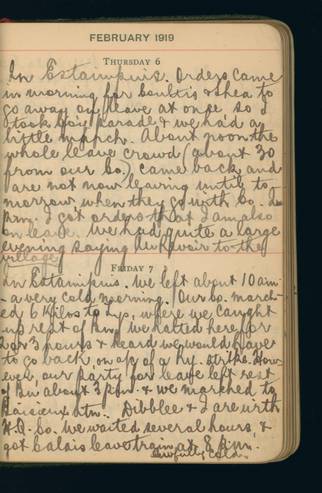 FEBRUARY 1919
THURSDAY 6
In Estaimpuis. Orders came
in morning for & Shea to
go away on leave at once so I
took Coy parade & we had a
little march. About noon the
whole leave crowd (about 30
from our Co.) came back and
are not now leaving until to
morrow when they go with Co.
I got orders that I am also
on leave. We had quite a large
evening saying Au Revoir to the
village
FRIDAY 7
In Estaimpuis. We left about 10 am
- a very cold morning. Our Co. march-
ed 6 Kilos to where we caught
up rest of Bn. We halted here for
2 or 3 hours & heard we would have
to go back, on a/c of a Ry. strike. How-
ever, our party for leave left rest
of Bn about 3 pm. & we marched to
Baisieux stn. Dibblee & I are with
H.Q. Co. We waited several hours, &
got Calais leave train at 8 p.m.
Awfully cold.